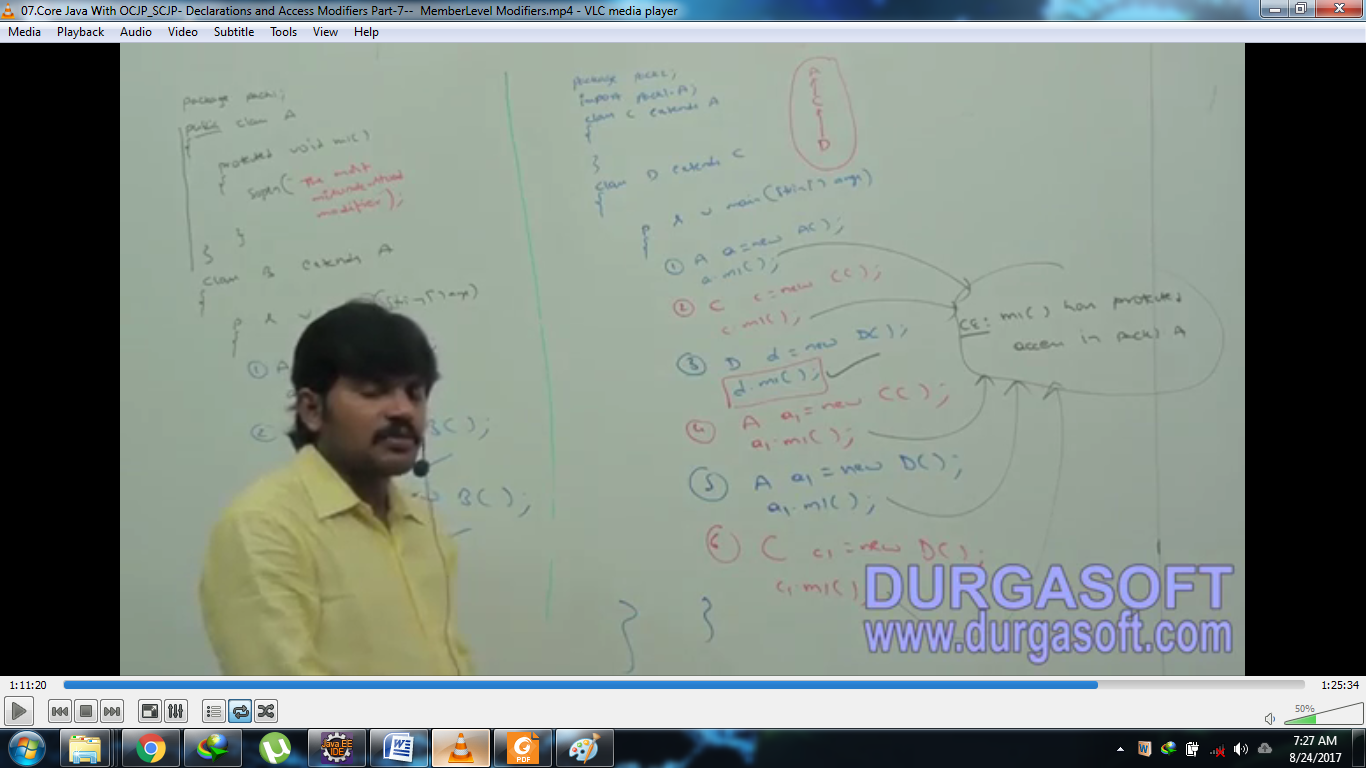 07.Core Java With OCJP_SCJP- Declarations and Access Modifiers Part-7-- MemberLevel Modifiers.mp4 - VLC media player
Media Playback Audio Video Subtitle Tools View Help
package pack1;
public class A
{
protected void m1()
{
sopln("The most
misunderstood
modifier");
}
}
class B extends A
{
p s v (String[] args)
{
① A
②
B();
B();
package pack2;
import pack1.A;
class C extends A
{
}
class D extends C
{
p s v main(String[] args)
{
① A a=new A();
a.m1();
② C c=new C();
c.m1();
③ D d=new D();
d.m1();
④ A a1=new C();
a1.m1();
⑤ A a1=new D();
a1.m1();
⑥ C c1=new D();
c1.m1()
}
}
A
C
D
CE: m1() has protected
access in pack1.A
DURGASOFT
www.durgasoft.com
1:11:20
1:25:34
50%
Java EE
IDE
PDF
7:27 AM
8/24/2017